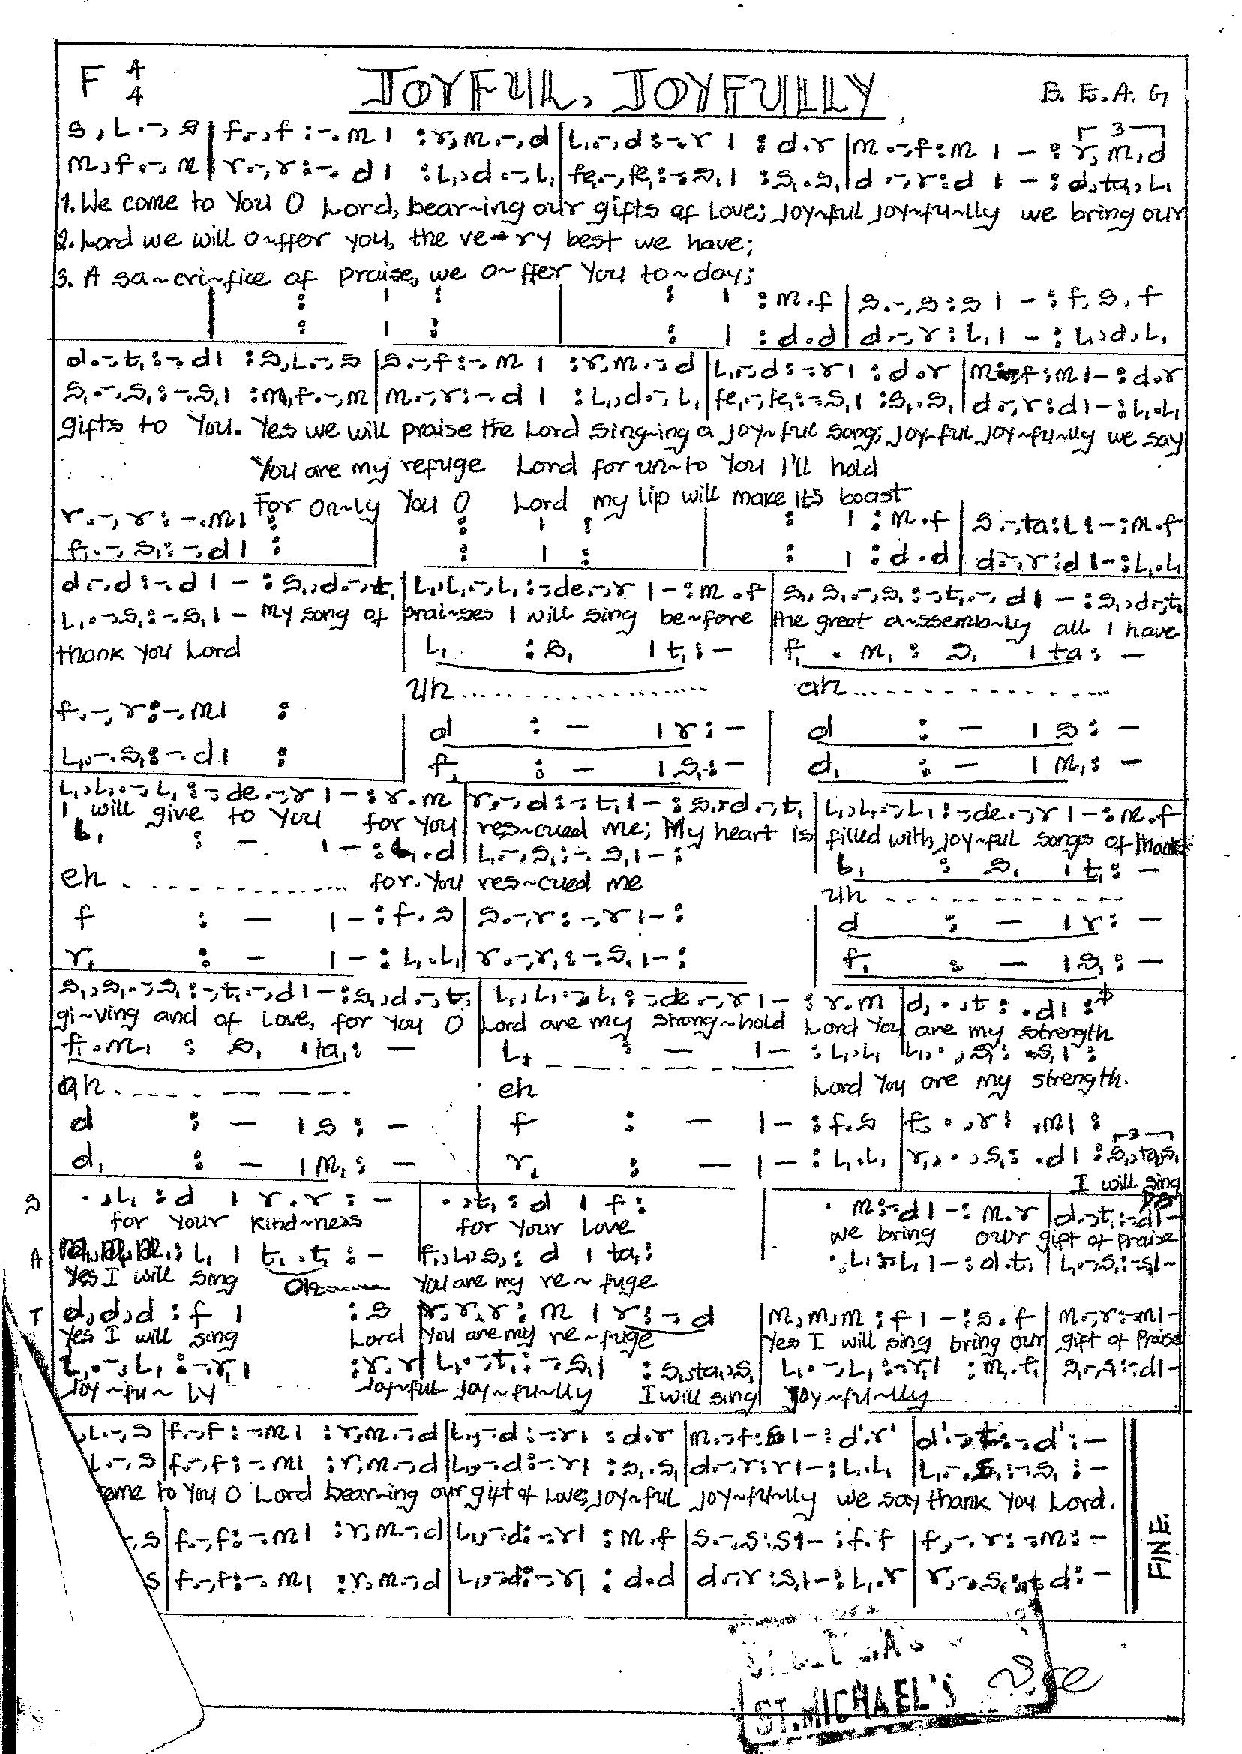 F 4/4 JOYFUL, JOYFULLY B. E. A. G
s,l.-,s | f.-,f :-.m | :r,m.-,d | l,.-,d :-.r | :d.r | m.-,f:m | - : r,m,d
m,f.-,m | r.-,r :-.d | :l,,d.-,l, | fe,.-,fe,:-.s, | :s,.s, | d.-,r:d | - : d,ta,,l,
1. We come to You O Lord, bear~ing our gifts of Love; Joy~ful Joy~fu~lly we bring our
2. Lord we will o~ffer you, the ve~ry best we have;
3. A sa~cri~fice of praise, we o~ffer You to~day;
: | : : | :m.f | s.-,s:s | - :f.s.f
: | : : | :d.d | d.-,r:l, | - :l,.d.l,
d.-,t,:-.d | :s,l.-,s | s.-,f:-.m | :r,m.-,d | l,.-,d:-.r | :d.r | m.-,f:m | - :d.r
s,.-,s,:-.s, | :m,f.-,m | m.-,r:-.d | :l,,d.-,l, | fe,.-,fe,:-.s, | :s,.s, | d.-,r:d | - :l,.l,
gifts to You. Yes we will praise the Lord Sing~ing a joy~ful song; Joy~ful Joy~fu~lly we say
You are my refuge Lord for un~to You I'll hold
For on~ly You O Lord my lip will make its boast
r.-,r:-.m | : : | : : | :m.f | s.-,ta:l | - :m.f
f,.-,s,:-.d | : : | : : | :d.d | d.-,r:d | - :l,.l,
d.-,d:-.d | - :s,,d.-,t, | l,,l,.-,l,:-.de.-,r | - :m.f | s,,s,.-,s,:-.t,.-,d | - :s,,d.-,t,
l,.-,s,:-.s, | - My song of praises I will sing be~fore the great a~ssemb~ly all I have
thank You Lord l, :s, | t,:- f, . m, : s, | ta:-
Uh................... ah...............
f.-,r:-.m | : d :- | r:- d :- | s:-
l,.-,s,:-.d | : f, :- | s,:- d, :- | m,:-
l,,l,.-,l,:-.de.-,r | - :r.m | r.-,d:-.t, | - :s,,d.-,t, | l,,l,.-,l,:-.de.-,r | - :m.f
I will give to You for You res~cued me; My heart is filled with, joy~ful songs of thanks
l, :- | - :l,.d | l,.-,s,:-.s, | - :
eh ............... for You res~cued me l, :s, | t,:-
uh ...............
f :- | - :f.s | s.-,r:-.r | - : d :- | r:-
r, :- | - :l,.l, | r.-,r,:-.s, | - : f, :- | s,:-
s,,s,.-,s,:-.t,.-,d | - :s,,d.-,t, | l,,l,.-,l,:-.de.-,r | - :r.m | d.,t:.d | :
gi~ving and of Love, for You O Lord are my strong~hold Lord You are my strength
f,.m, : s, | ta,:- l, :- | - :l,.l, | l,.,s,:.s, | :
ah............... eh Lord You are my strength.
d :- | s:- f :- | - :f.s | f.,r:.m | :
d, :- | m,:- r, :- | - :l,.l, | r,.,s,:.d | :s,,ta,,s,
I will sing
S .,l,:d | r.r:- .,t,:d | f: . m:-d | - :m.r | d.-,t,:-.d | -
for Your kind~ness for Your Love we bring our gift of praise
A :l, | t,.t,:- f,.l,,s,:d | ta,: .l,:l, | - :d.t, | l,.-,s,:-.s, | -
Yes I will sing Oh You are my re~fuge
T d,d,d:f | :s r,r,r:m | r:-.d m,m,m:f | - :s.f | m.-,r:-.m | -
Yes I will sing Lord You are my re~fuge Yes I will sing bring our gift of Praise
l,.-,l,:-.r, | :r.r | l,.-,t,:-.s, | :s,,ta,,s, l,.-,l,:-.r, | :m.f, | s,.-,s,:-.d | -
Joy~fu~ly Joy~ful Joy~fu~lly I will sing Joy~fu~lly
,l.-,s | f.-,f:-.m | :r,m.-,d | l,.-,d:-.r | :d.r | m.-,f:s | - :d'.r' | d'.-,t:-.d' :-
l.-,s | f.-,f:-.m | :r,m.-,d | l,.-,d:-.r | :s,.s, | d.-,r:r | - :l,.l, | l,.-,s,:-.s, :-
ome to You O Lord bear~ing our gift of Love, Joy~ful Joy~fu~lly we say thank You Lord.
,s | f.-,f:-.m | :r,m.-,d | l,.-,d:-.r | :m.f | s.-,s:s | - :f.f | f.-,r:-.m :-
s | f.-,f:-.m | :r,m.-,d | l,.-,d:-.r | :d.d | d.-,r:s, | - :l,.r | r.-,s,:-.d :-
FINE
ST. MICHAEL'S